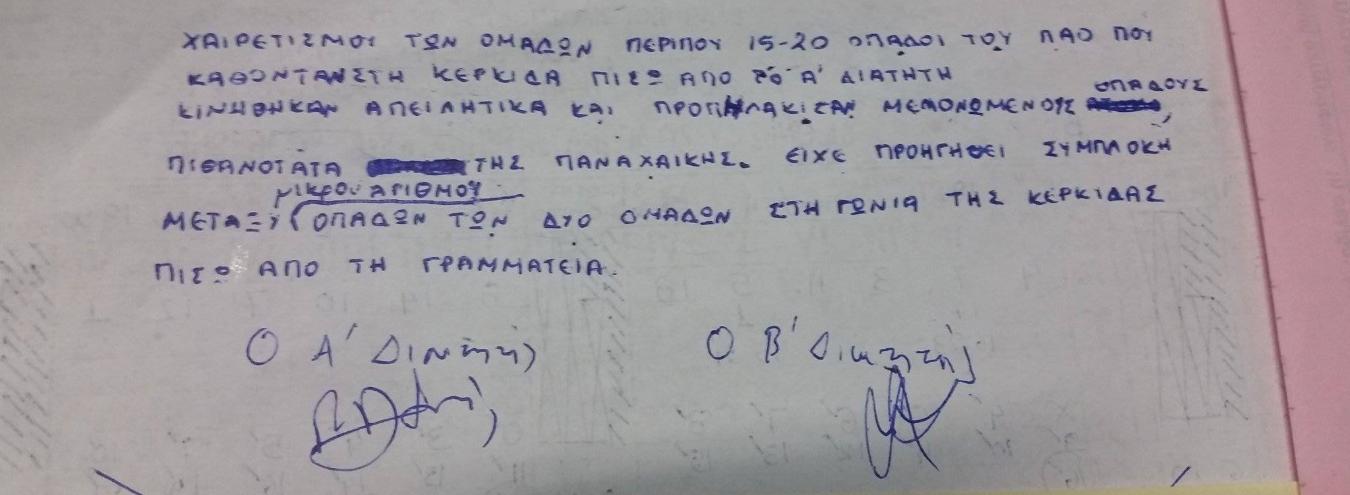 ΧΑΙΡΕΤΙΣΜΟΥ ΤΩΝ ΟΜΑΔΩΝ ΠΕΡΙΠΟΥ 15-20 ΟΠΑΔΟΙ ΤΟΥ ΠΑΟ ΠΟΥ
ΚΑΘΟΝΤΑΝ ΣΤΗ ΚΕΡΚΙΔΑ ΠΙΣΩ ΑΠΟ ΤΟ Α' ΔΙΑΤΗΤΗ
ΟΠΑΔΟΥΣ
ΚΙΝΗΘΗΚΑΝ ΑΠΕΙΛΗΤΙΚΑ ΚΑΙ ΠΡΟΠΗΛΑΚΙΣΑΝ ΜΕΜΟΝΩΜΕΝΟΥΣ ,
ΠΙΘΑΝΟΤΑΤΑ ΤΗΣ ΠΑΝΑΧΑΙΚΗΣ. ΕΙΧΕ ΠΡΟΗΓΗΘΕΙ ΣΥΜΠΛΟΚΗ
ΜΙΚΡΟΥ ΑΡΙΘΜΟΥ
ΜΕΤΑΞΥ ( ΟΠΑΔΩΝ ΤΩΝ ΔΥΟ ΟΜΑΔΩΝ ΣΤΗ ΓΩΝΙΑ ΤΗΣ ΚΕΡΚΙΔΑΣ
ΠΙΣΩ ΑΠΟ ΤΗ ΓΡΑΜΜΑΤΕΙΑ.
Ο Α' Διαιτητής Ο Β' Διαιτητής